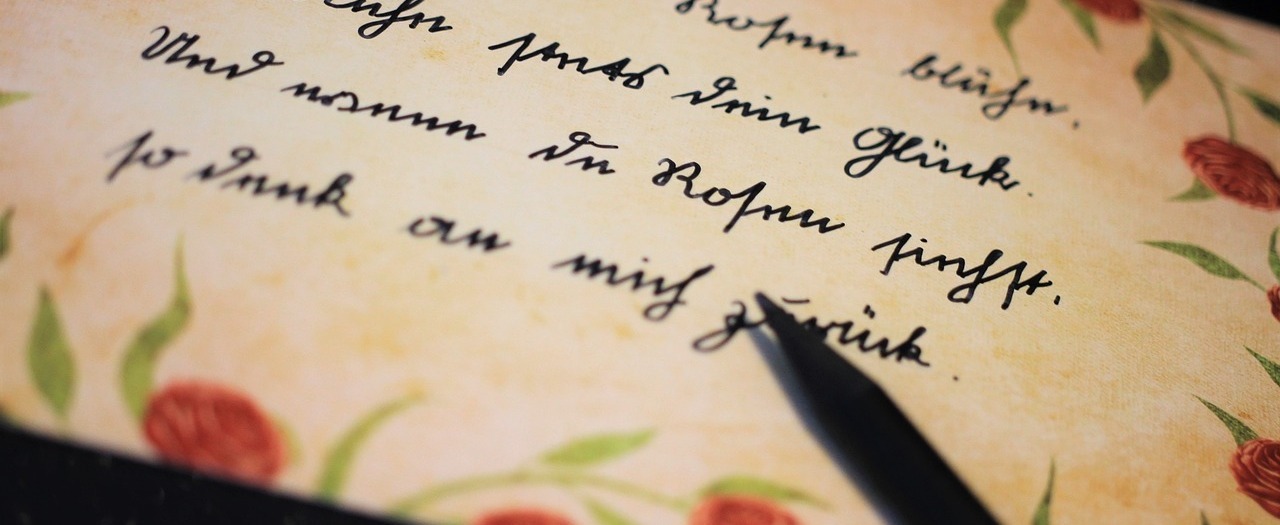 Rosen blühn.
stets dein Glück.
Und wenn du Rosen siehst,
so denk an mich zurück.